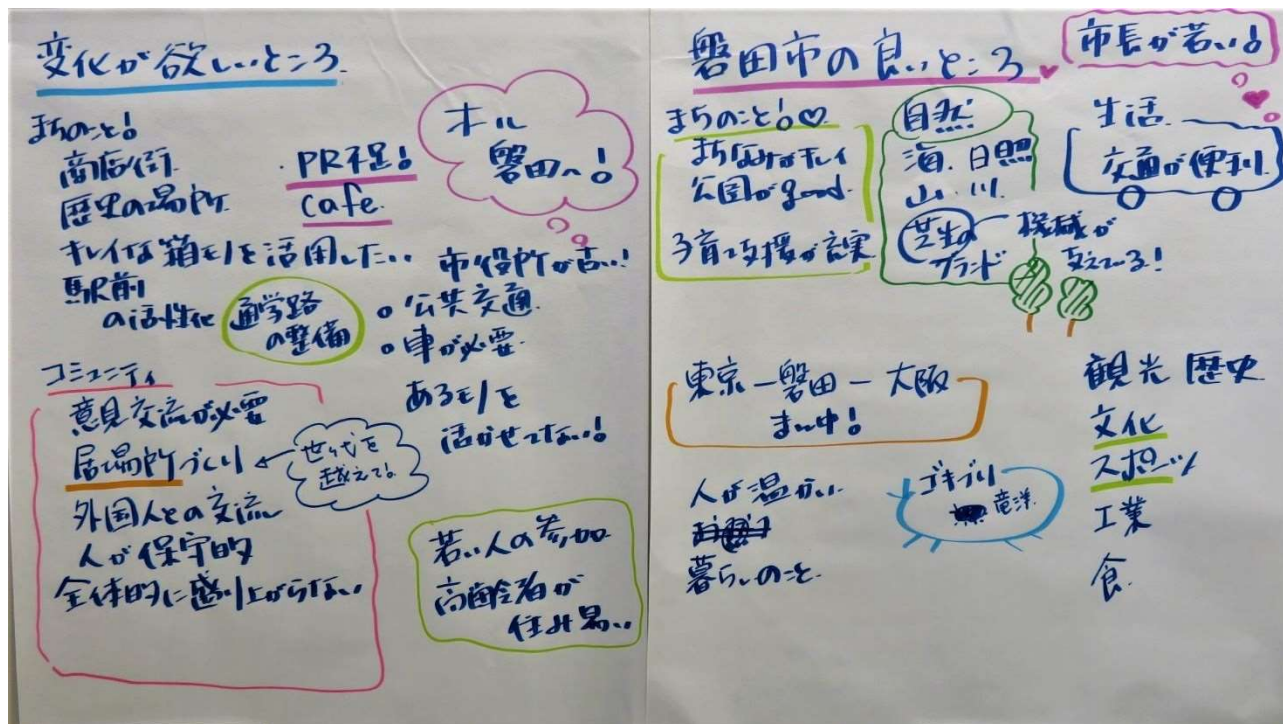 変化が欲しいところ
まちのこと!
商店街
歴史の場所
・PR不足!
cafe
オール
磐田へ!
キレイな箱モノを活用したい
駅前
の活性化
通学路
の整備
市役所が古い!
公共交通
車が必要
あるモノを
活かせてない!
コミュニティ
意見交流が必要
居場所づくり
世代を
越えて!
外国人との交流
人が保守的
全体的に盛り上がらない
若い人の参加
高齢者が
住み易い
磐田市の良いところ
市長が若い!
まちのこと!
まち並みがキレイ
公園がgood
子育て支援が充実
自然
海.日照
山.川
芝生の
ブランド
機械が
支えている!
生活
交通が便利
東京-磐田-大阪
まん中!
人が温かい
暮らしのこと
ゴキブリ
竜洋
観光 歴史
文化
スポーツ
工業
食